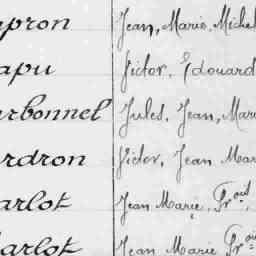 pron Jean, Marie, Michel
apu Victor, Edouard
rbonnel Jules, Jean, Mari
rdron Victor, Jean Mar
arlot Jean Marie,
arlot Jean Marie